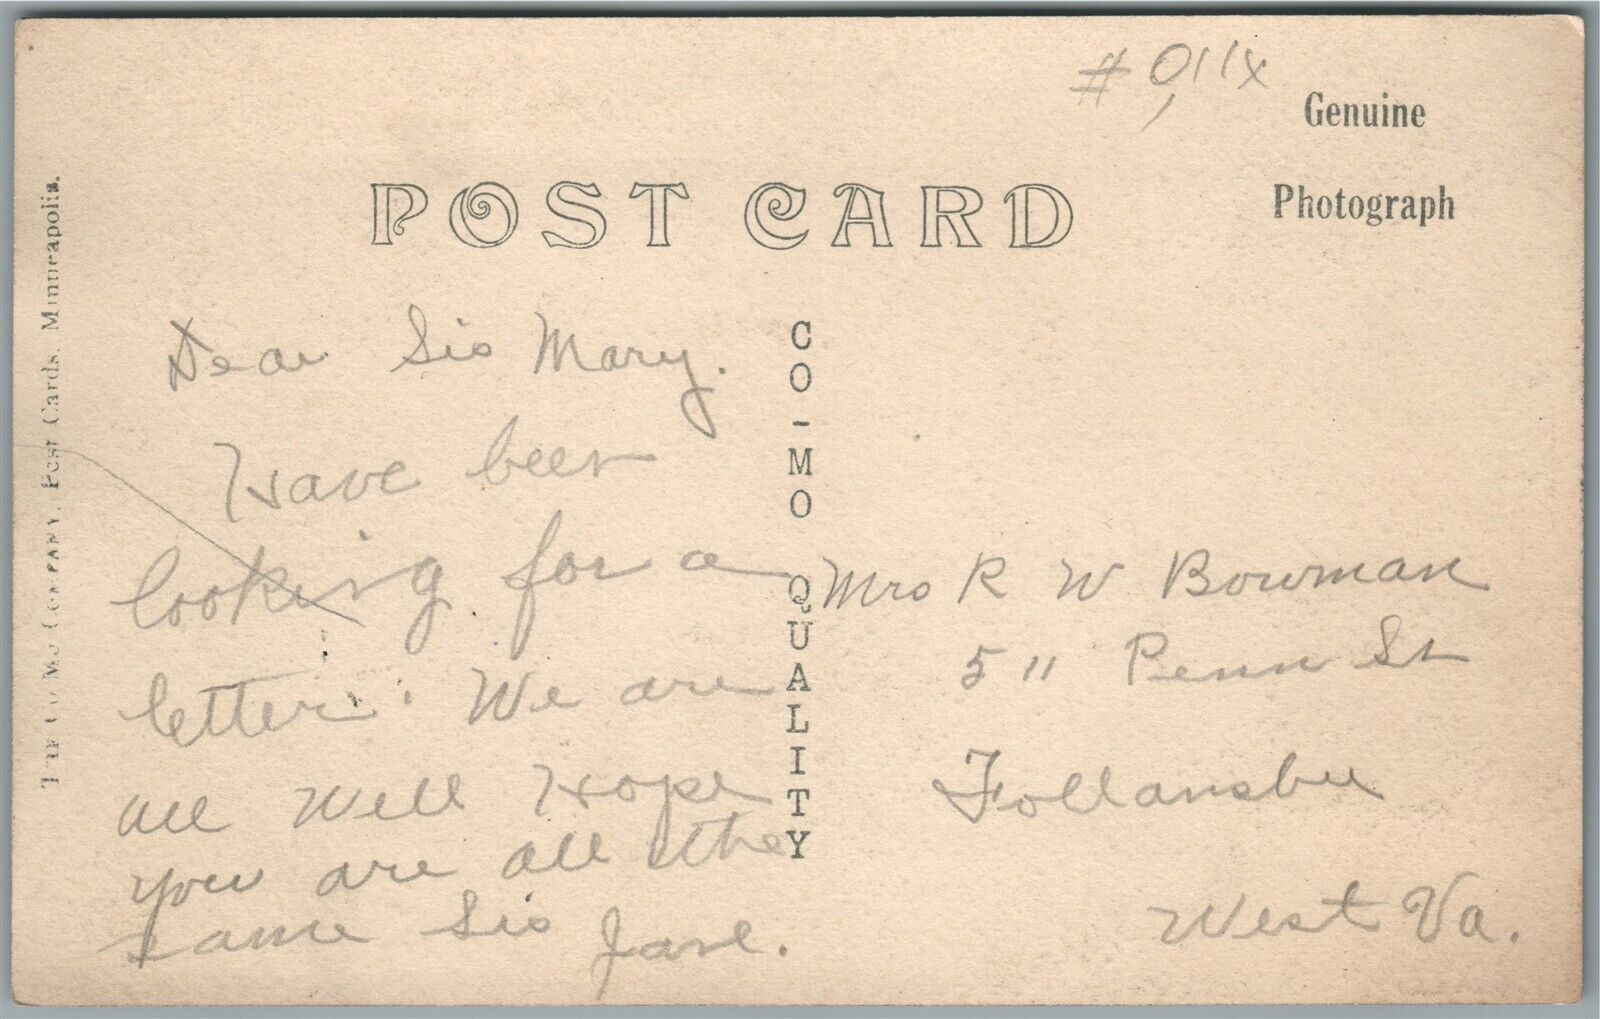 Genuine
Photograph
POST CARD
THE CO-MO COMPANY, Post Cards, Minneapolis.
Dear Sis Mary.
Have been
looking for a
letter. We are
all well Hope
you are all the
same Sis Jane.
CO-MO QUALITY
Mrs R W Bowman
511 Penn St
Follansbee
West Va.